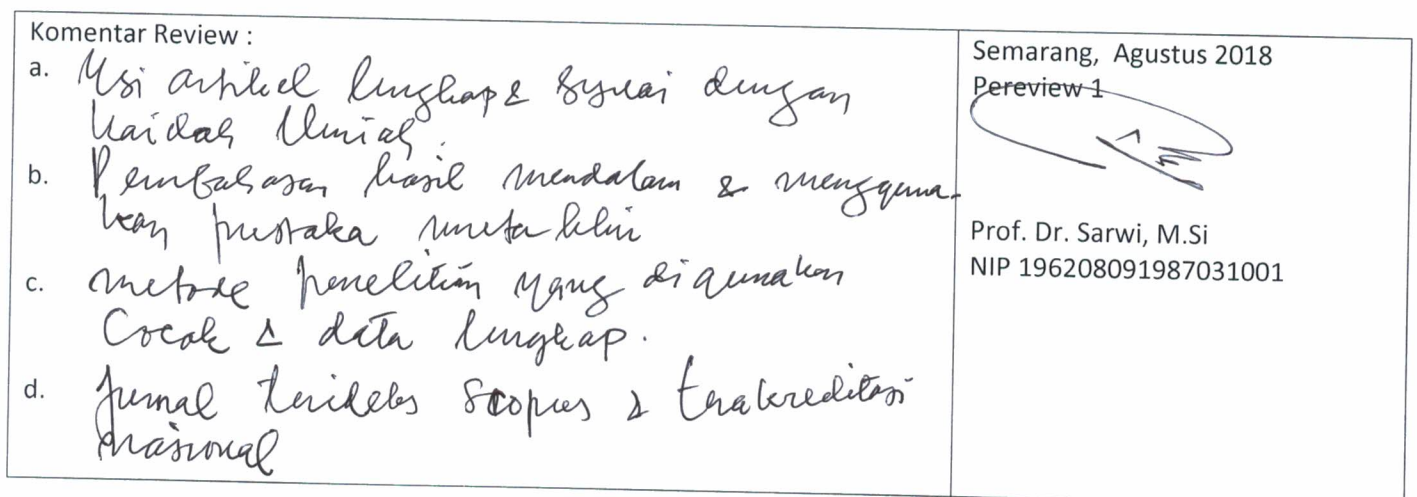 Komentar Review :
a. Usi artikel lengkap & sesuai dengan
kaidah Ilmiah.
b. Pembahasan hasil mendalam & mengguna-
kan pustaka mutakhir
c. metode penelitian yang digunakan
Cocok & data lengkap.
d. Jurnal terideks Scopus & terakreditasi
nasional
Semarang, Agustus 2018
Pereview 1
Prof. Dr. Sarwi, M.Si
NIP 196208091987031001